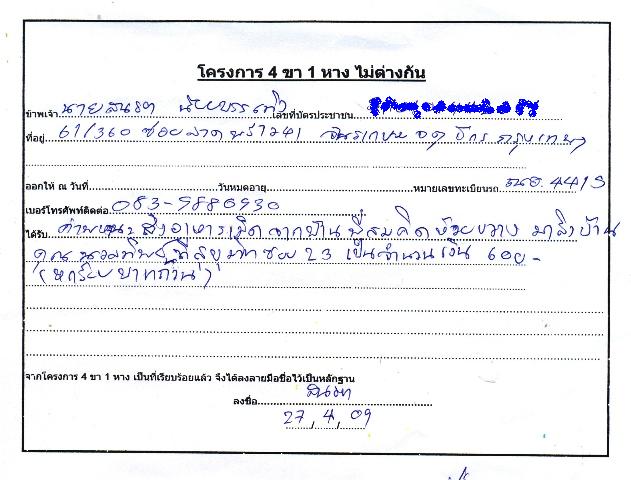 โครงการ 4 ขา 1 หาง ไม่ต่างกัน
ข้าพเจ้า นาย เลขที่บัตรประชาชน
ที่อยู่ 61/360 ซอยลาดพร้าว41 จตุจักร กรุงเทพฯ
ออกให้ ณ วันที่ วันหมดอายุ หมายเลขทะเบียนรถ 4419
เบอร์โทรศัพท์ติดต่อ 083-9886930
ได้รับ ค่าพาหนะส่งอาหารเม็ดจากบ้านพี่สมคิดห้วยขวาง มาถึงบ้าน
คุณ ที่สุขุมวิทซอย 23 เป็นจำนวนเงิน 600-
(หกร้อยบาทถ้วน)
จากโครงการ 4 ขา 1 หาง เป็นที่เรียบร้อยแล้ว จึงได้ลงลายมือชื่อไว้เป็นหลักฐาน
ลงชื่อ
27/4/09